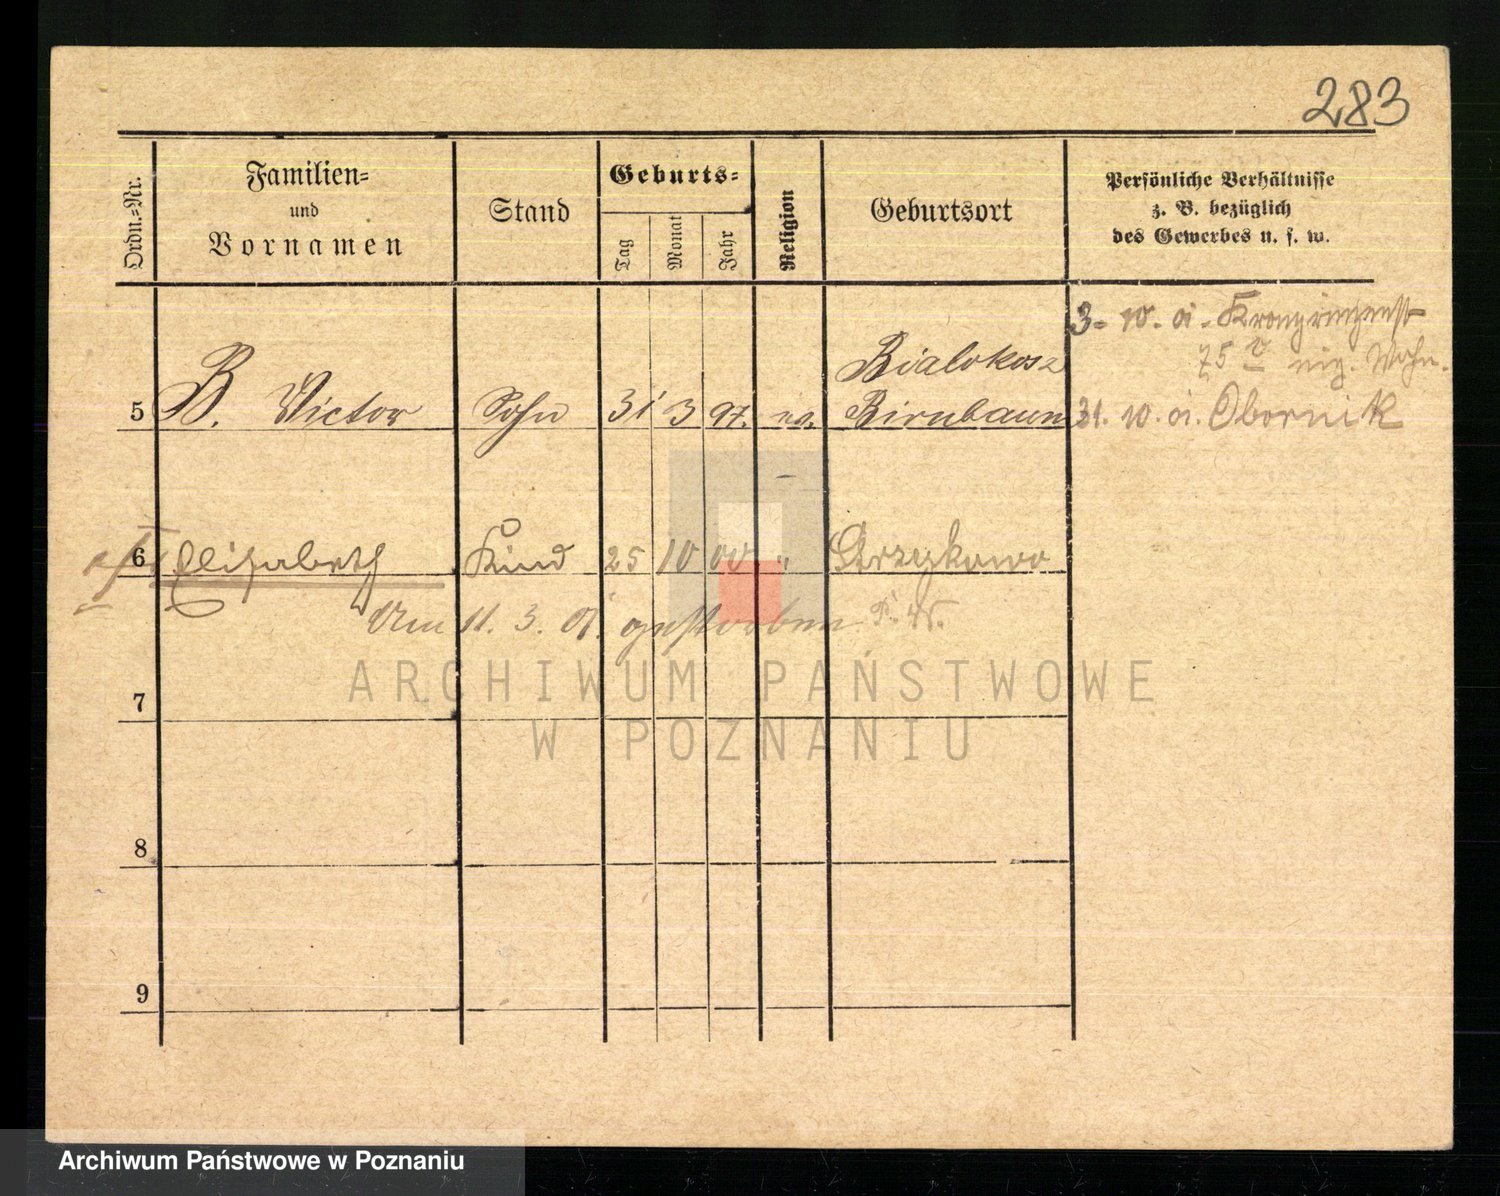 283
Ordn.=Nr.
Familien=
und
Vornamen
Stand
Geburts=
Tag
Monat
Jahr
Religion
Geburtsort
Persönliche Verhältnisse
z. B. bezüglich
des Gewerbes u. s. w.
3. 10. 01.
75
Wohn.
Bialokosz
5 B. Victor Sohn 31 3 97. Birnbaum 31. 10. 01. Obornik
6 Elisabeth Kind 25 10 00 "
Am 11. 3. 01. gestorben
7
8
9
ARCHIWUM PAŃSTWOWE
W POZNANIU
Archiwum Państwowe w Poznaniu